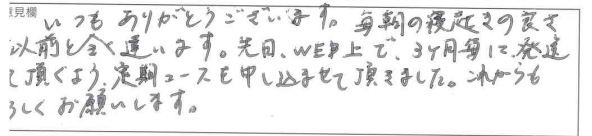 意見欄
いつもありがとうございます。毎朝の寝起きの良さ
以前と全く違います。先日、WEB上で、3ヶ月毎に発送
て頂くよう、定期コースを申し込ませて頂きました。これからも
ろしくお願いします。